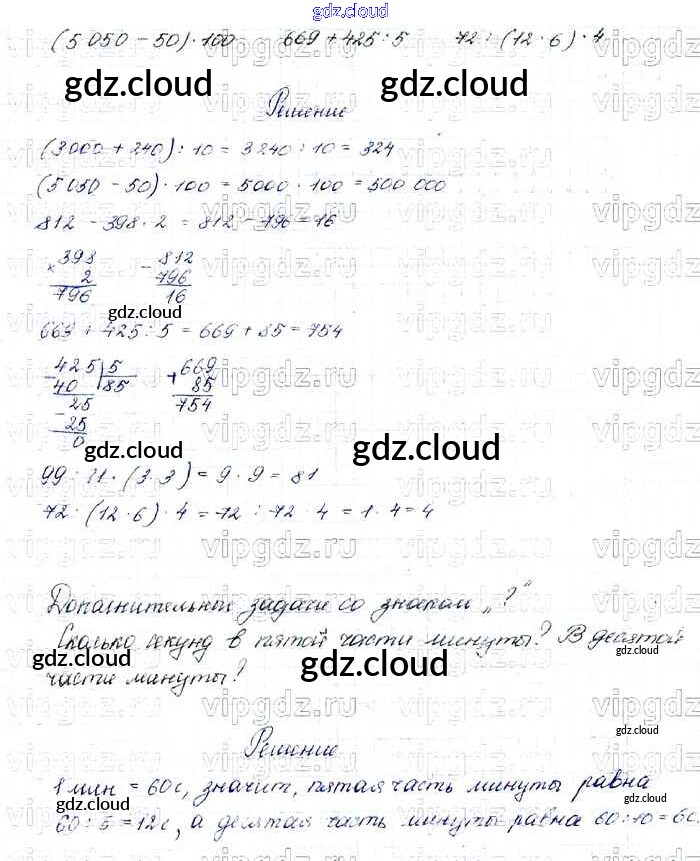 gdz.cloud
(5 050 − 50) · 100 669 + 425 : 5 72 : (12 · 6) · 4
gdz.cloud gdz.cloud
Решение
(3000 + 240) : 10 = 3240 : 10 = 324
(5 050 − 50) · 100 = 5000 · 100 = 500 000
812 − 398 · 2 = 812 − 796 = 16
× 398 − 812
2 796
796 16
gdz.cloud
669 + 425 : 5 = 669 + 85 = 754
− 425 | 5 + 669
40 | 85 85
− 25 754
25
0
gdz.cloud gdz.cloud
99 : 11 · (3 · 3) = 9 · 9 = 81
72 : (12 · 6) · 4 = 72 : 72 · 4 = 1 · 4 = 4
vipgdz.ru
Дополнительной задачи со знаком „?“
Сколько секунд в пятой части минуты? В десятой
gdz.cloud gdz.cloud gdz.cloud
части минуты?
gdz.cloud
Решение
1 мин = 60 с, значит, пятая часть минуты равна
60 : 5 = 12 с, а десятая часть минуты равна 60 : 10 = 6 с.
gdz.cloud gdz.cloud gdz.cloud